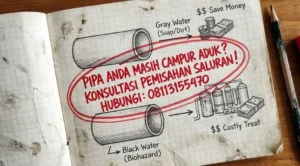 Gray Water
(Soap/Dirt)
$$ Save Money
PIPA ANDA MASIH CAMPUR ADUK?
KONSULTASI PEMISAHAN SALURAN!
HUBUNGI: 08113155470
Black Water
(Biohazard)
$$ Costly Treat